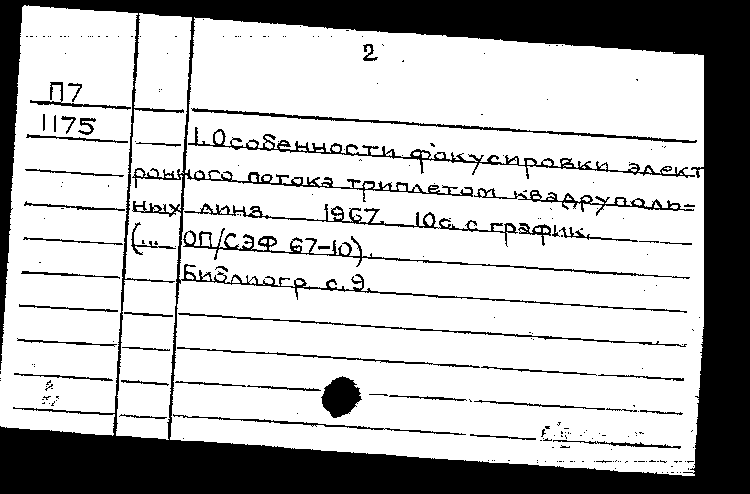 2
П7
1175
1. Особенности фокусировки элект
ронного потока триплетом квадруполь=
ных линз. 1967. 10с. с график.
(... ОП/СЭФ 67-10).
Библиогр. с. 9.